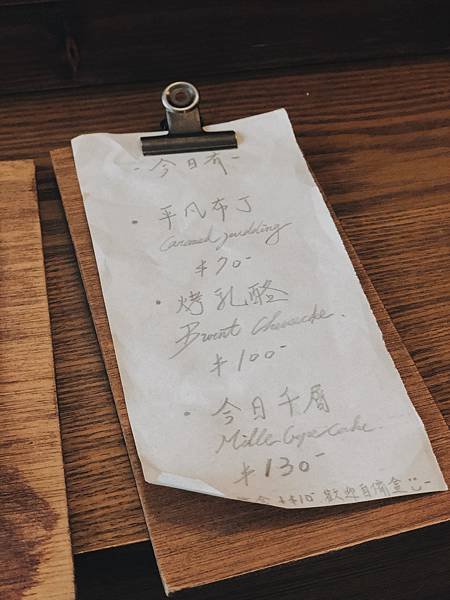 -今日有-
• 平凡布丁
Caramel pudding
$70-
• 烤乳酪
Burnt Cheesecake.
$100-
• 今日千層
Mille Crepe Cake.
$130-
$10 歡迎自備盒